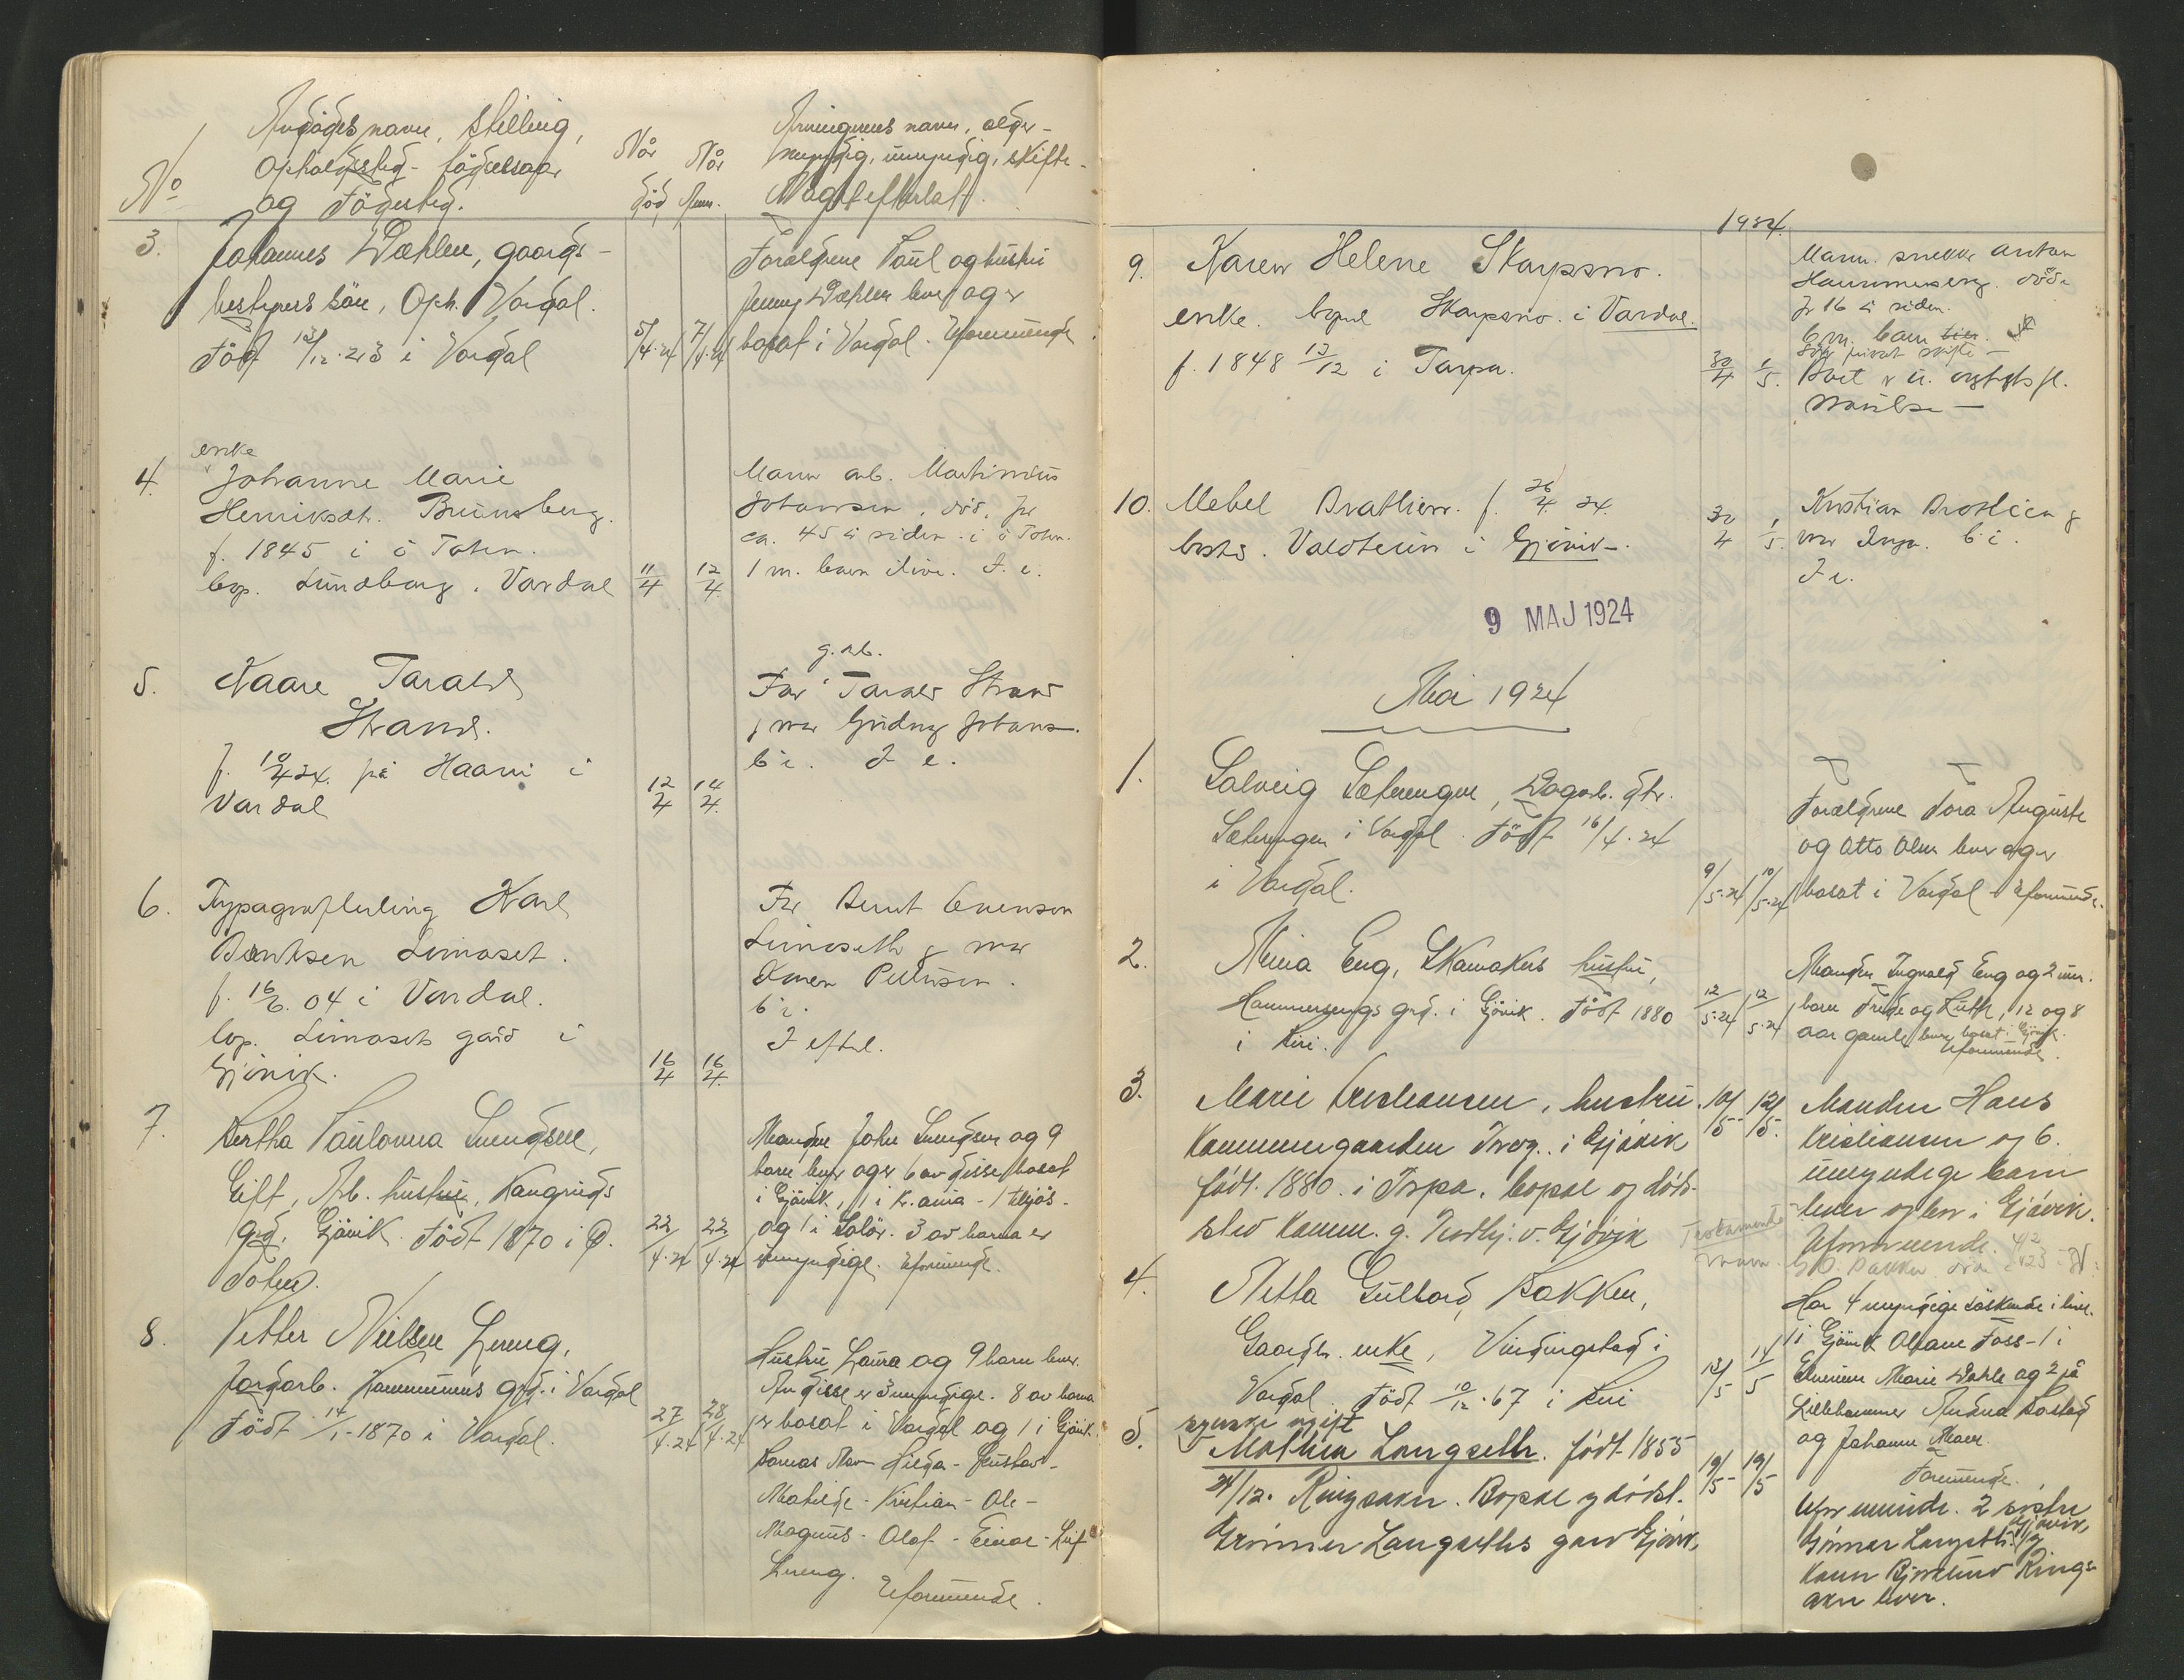 No
Avdødes navn, stilling,
Opholdssted - fødselsaar
og Fødested.
Når
død
Når
Anm.
Arvingernes navn, alder -
myndig, umyndig, skifte -
Noget efterlatt.
3.
Johannes Dæhlen, gaards-
bestyrers søn, Oph. Vardal.
Født 13/12.23 i Vardal
5/4.24
7/4.24
Forældrene Paul og hustru
Jenny Dæhlen lever og er
bosat i Vardal. Uformuende
4.
enke
Johanne Marie
Henriksdt. Bruunsberg.
f. 1845 i ö Toten.
bop. Lundborg. Vardal
11/4
12/4
Mann arb. Martinius
Johansen, död, for
ca. 45 å siden i ö Toten.
1 m. barn ilive. I. e.
5.
Kaare Tarald
Strand.
f. 10/4 24. på Haarni i
Vardal
12/4
14/4
g. arb.
Far Tarald Strand
j mor Gudny Johans.
b i. I e.
6.
Typograflærling Karl
Berntsen Limoset.
f. 16/6. 04 i Vardal.
bop. Limosets gård i
Gjövik.
16/4
16/4
Far Bernt Evensen
Limoseth g mor
Karen Petersen.
b i.
I eftel.
7.
Bertha Paulovna Svendsen,
Gift, Arb. hustru, Kangruds
grd. Gjövik. Født 1870 i Ø.
Toten.
22/4.24
22/4.24
Manden John Svendsen og 9
barn lever og er 6 av disse bosat
i Gjövik, 1 i Kr.ania - 1 tilsjøs -
og 1 i Solør. 3 av barna er
umyndige. Uformuende.
8.
Petter Nielsen Lerung,
Jordarb. Kommunens grd. i Vardal
Født 14/1-1870 i Vardal.
27/4.24
28/4.24
Hustru Laura og 9 barn lever.
Av disse er 3 myndige. 8 av barna
er bosat i Vardal og 1 i Gjövik.
Barnas Navn Hilda - Gustav -
Mathilde - Kristian - Ole -
Magnus - Olaf - Einar - Leif
Lerung. Uformuende.
1924.
9.
Karen Helene Skarpsno.
enke. bopel Skarpsno i Vardal.
f. 1848 13/12 i Torpa.
30/4
1/5.
Mann. snekker Anton
Hammerseng. död
for 16 å siden.
6 m. barn
søg privat skifte -
Boet er u.
10.
Mebel Bratlien. f. 26/4 24.
bosts. Valdtein i Gjövik.
30/4
1/5.
Kristian Bratlien g
mor Inga. b i.
I e.
9 MAJ 1924
Mai 1924
1.
Solveig Sæterengen, Dagarb. dtr.
Sæterengen i Vardal. Født 16/4.24
i Vardal.
9/5.24
10/5.24
Forældrene Tora Auguste
og Otto Olsen lever og er
bosat i Vardal - Uformuende.
2.
Mina Eng, Skomakers hustru,
Hammersengs grd. i Gjövik. Født 1880
i Biri.
12/5.24
12/5.24
Manden Ingvald Eng og 2 um.
barn Frida og Ruth, 12 og 8
aar gamle lever, bosat i Gjövik.
Uformuende.
3.
Marie Kristiansen, hustru.
Kommunegaarden Tverg. i Gjövik
født 1880. i Torpa. bopæl og døds-
sted Komm. g. Nordby. v. Gjövik
10/5
12/5.
Manden Hans
Kristiansen og 6.
umyndige barn
lever og bor i Gjövik.
Uformuende.
Testamente
4.
Netta Gulbord Bakken,
Gaardbr. enke, Vindingstad i
Vardal. Født 10/12.67 i Biri
13/5
14/5
Har 4 myndige søskende i live.
1 i Gjövik Oliane Foss - 1 i
Elverum Marie Dahle og 2 på
Lillehammer Andrea Bostad
og Johanne Moen.
Formuende.
5.
syerske ugift
Mathea Langseth. født 1855
24/12. Ringsaker. Bopæl og dödst.
Grimmer Langseths gaard Gjövik.
19/5
19/5
Uformuende. 2 søstre
Gunnar Langseth. Gjövik, og
Karen Björklund Rings-
aker lever.